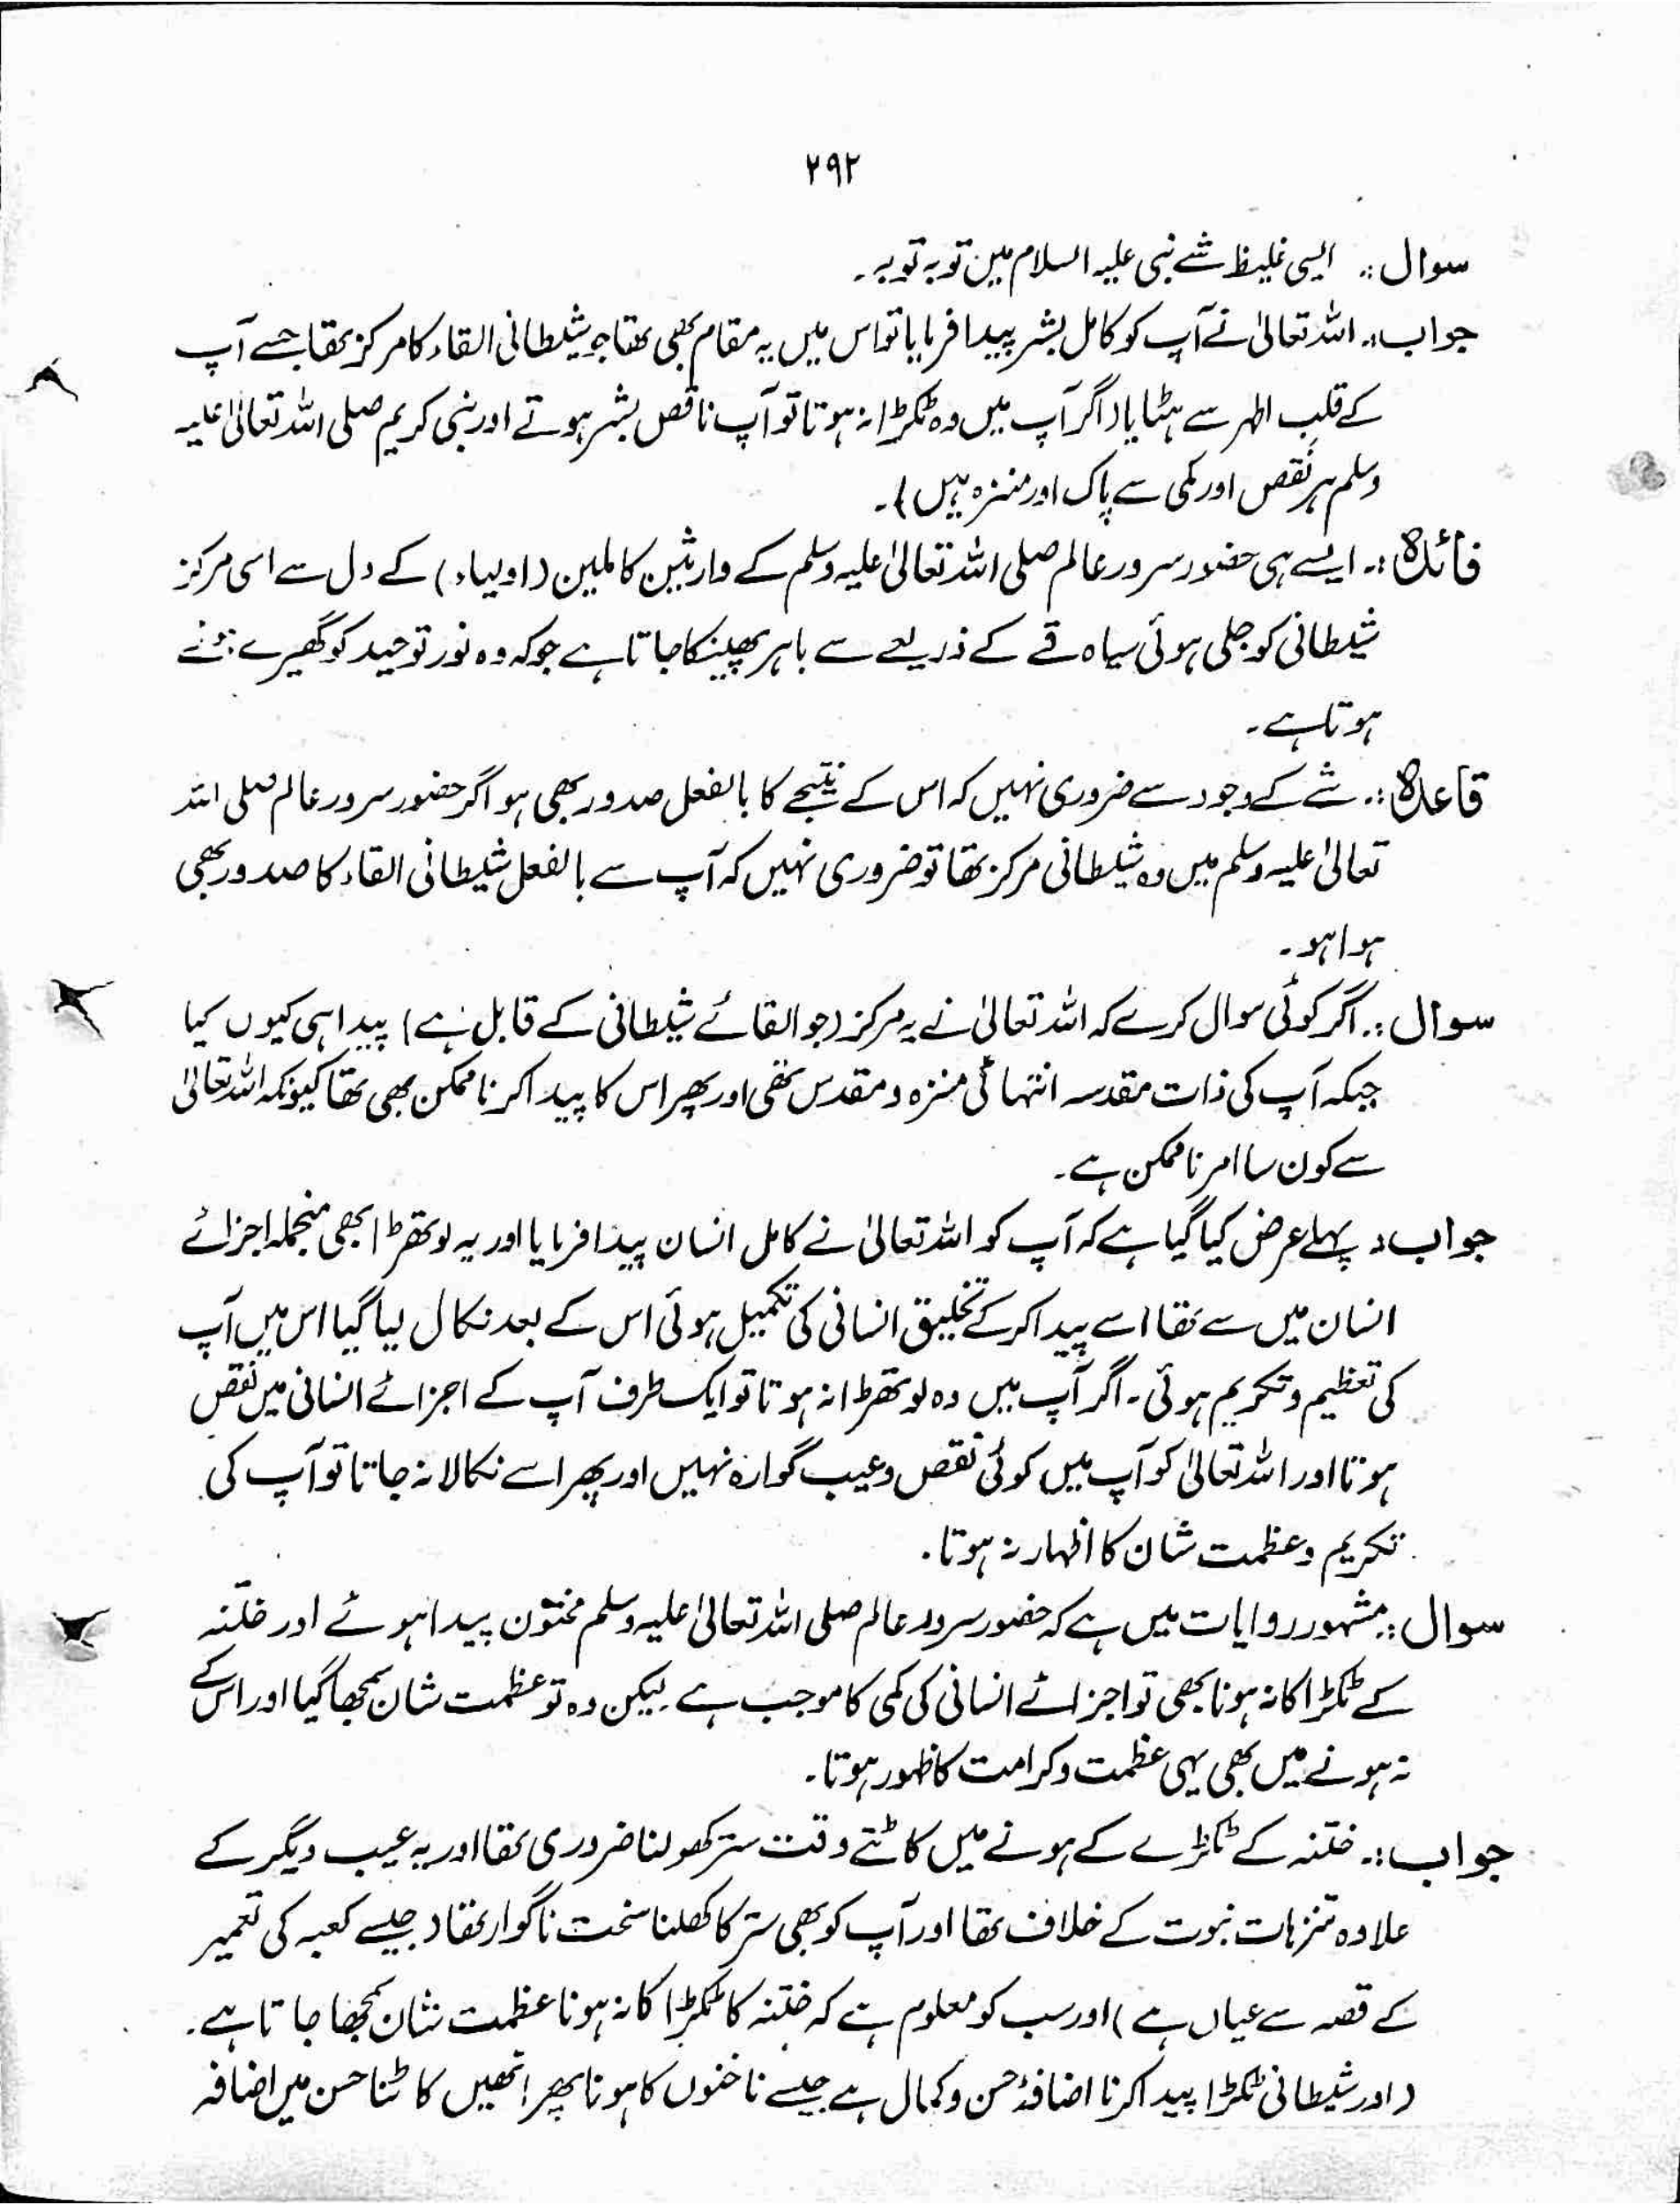 ۲۹۲
سوال :۔ ایسی غلیظ شے نبی علیہ السلام میں توبہ توبہ۔
جواب :۔ اللہ تعالیٰ نے آپ کو کامل بشر پیدا فرمایا تو اس میں یہ مقام بھی تھا جو شیطانی القاء کا مرکز تھا جسے آپ
کے قلب اطہر سے ہٹایا (اگر آپ میں وہ ٹکڑا نہ ہوتا تو آپ ناقص بشر ہوتے اور نبی کریم صلی اللہ تعالیٰ علیہ
وسلم ہر نقص اور کمی سے پاک اور منزہ ہیں)۔
فائدہ :۔ ایسے ہی حضور سرور عالم صلی اللہ تعالیٰ علیہ وسلم کے وارثین کاملین (اولیاء) کے دل سے اسی مرکز
شیطانی کو جلی ہوئی سیاہ قے کے ذریعے سے باہر پھینکا جاتا ہے جو کہ وہ نور توحید کو گھیرے ہوئے
ہوتا ہے۔
قاعدہ :۔ شے کے وجود سے ضروری نہیں کہ اس کے نتیجے کا بالفعل صدور بھی ہو اگر حضور سرور عالم صلی اللہ
تعالیٰ علیہ وسلم میں وہ شیطانی مرکز تھا تو ضروری نہیں کہ آپ سے بالفعل شیطانی القاء کا صدور بھی
ہوا ہو۔
سوال :۔ اگر کوئی سوال کرے کہ اللہ تعالیٰ نے یہ مرکز (جو القائے شیطانی کے قابل ہے) پیدا ہی کیوں کیا
جبکہ آپ کی ذات مقدسہ انتہائی منزہ و مقدس تھی اور پھر اس کا پیدا کرنا ممکن بھی تھا کیونکہ اللہ تعالیٰ
سے کون سا امر ناممکن ہے۔
جواب : پہلے عرض کیا گیا ہے کہ آپ کو اللہ تعالیٰ نے کامل انسان پیدا فرمایا اور یہ لوتھڑا بھی منجملہ اجزائے
انسان میں سے تھا اسے پیدا کر کے تخلیق انسانی کی تکمیل ہوئی اس کے بعد نکال لیا گیا اس میں آپ
کی تعظیم و تکریم ہوئی۔ اگر آپ میں وہ لوتھڑا نہ ہوتا تو ایک طرف آپ کے اجزائے انسانی میں نقص
ہوتا اور اللہ تعالیٰ کو آپ میں کوئی نقص و عیب گوارہ نہیں اور پھر اسے نکالا نہ جاتا تو آپ کی
تکریم و عظمت شان کا اظہار نہ ہوتا۔
سوال :۔ مشہور روایات میں ہے کہ حضور سرور عالم صلی اللہ تعالیٰ علیہ وسلم مختون پیدا ہوئے اور ختنہ
کے ٹکڑا کا نہ ہونا بھی تو اجزائے انسانی کی کمی کا موجب ہے لیکن وہ تو عظمت شان سمجھا گیا اور اس کے
نہ ہونے میں بھی یہی عظمت و کرامت کا ظہور ہوتا۔
جواب :۔ ختنہ کے ٹکڑے کے ہونے میں کاٹتے وقت ستر کھولنا ضروری تھا اور یہ عیب دیگر کے
علاوہ تنزہات نبوت کے خلاف تھا اور آپ کو بھی ستر کا کھلنا سخت ناگوار تھا (جیسے کعبہ کی تعمیر
کے قصہ سے عیاں ہے) اور سب کو معلوم ہے کہ ختنہ کا ٹکڑا کا نہ ہونا عظمت شان سمجھا جاتا ہے۔
(اور شیطانی ٹکڑا پیدا کرنا اضافۂ حسن و کمال ہے جیسے ناخنوں کا ہونا پھر انھیں کاٹنا حسن میں اضافہ